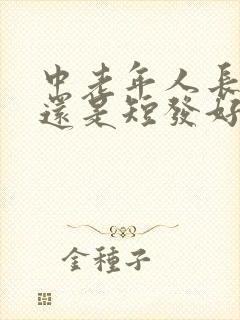 中老年人長
還是短發好
金種子